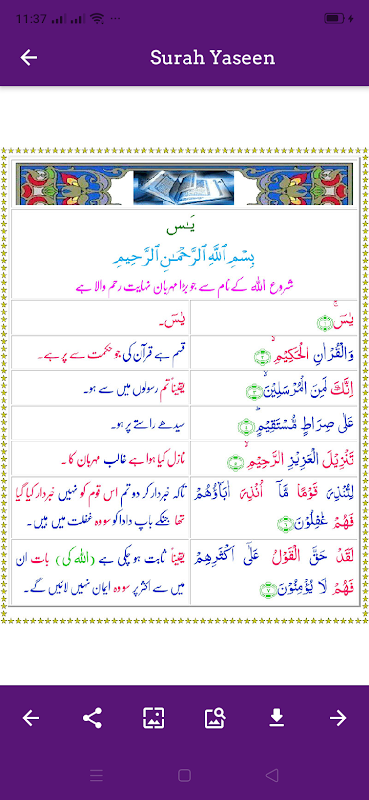 11:37
Surah Yaseen
يٰـس
بِسْمِ ٱللَّهِ ٱلرَّحْمَـٰنِ ٱلرَّحِيمِ
شروع اللہ کے نام سے جو بڑا مہربان نہایت رحم والا ہے
يٰسٓ ۚ ﴿۱﴾
یٰسٓ۔
وَالْقُرْاٰنِ الْحَكِيْمِ ۙ ﴿۲﴾
قسم ہے قرآن کی جو حکمت سے پر ہے۔
اِنَّكَ لَمِنَ الْمُرْسَلِيْنَ ۙ ﴿۳﴾
یقیناً تم رسولوں میں سے ہو۔
عَلٰى صِرَاطٍ مُّسْتَقِيْمٍ ؕ ﴿۴﴾
سیدھے راستے پر ہو۔
تَنْزِيْلَ الْعَزِيْزِ الرَّحِيْمِ ۙ ﴿۵﴾
نازل کیا ہوا ہے غالب مہربان کا۔
لِتُنْذِرَ قَوْمًا مَّاۤ اُنْذِرَ اٰبَآؤُهُمْ
فَهُمْ غٰفِلُوْنَ ﴿۶﴾
تاکہ خبردار کر دو تم اس قوم کو نہیں خبردار کیا گیا
تھا جنکے باپ دادا کو سو وہ غفلت میں ہیں۔
لَقَدْ حَقَّ الْقَوْلُ عَلٰٓى اَكْثَرِهِمْ
فَهُمْ لَا يُؤْمِنُوْنَ ﴿۷﴾
یقیناً ثابت ہو چکی ہے (اللہ کی) بات ان
میں سے اکثر پر سو وہ ایمان نہیں لائیں گے۔